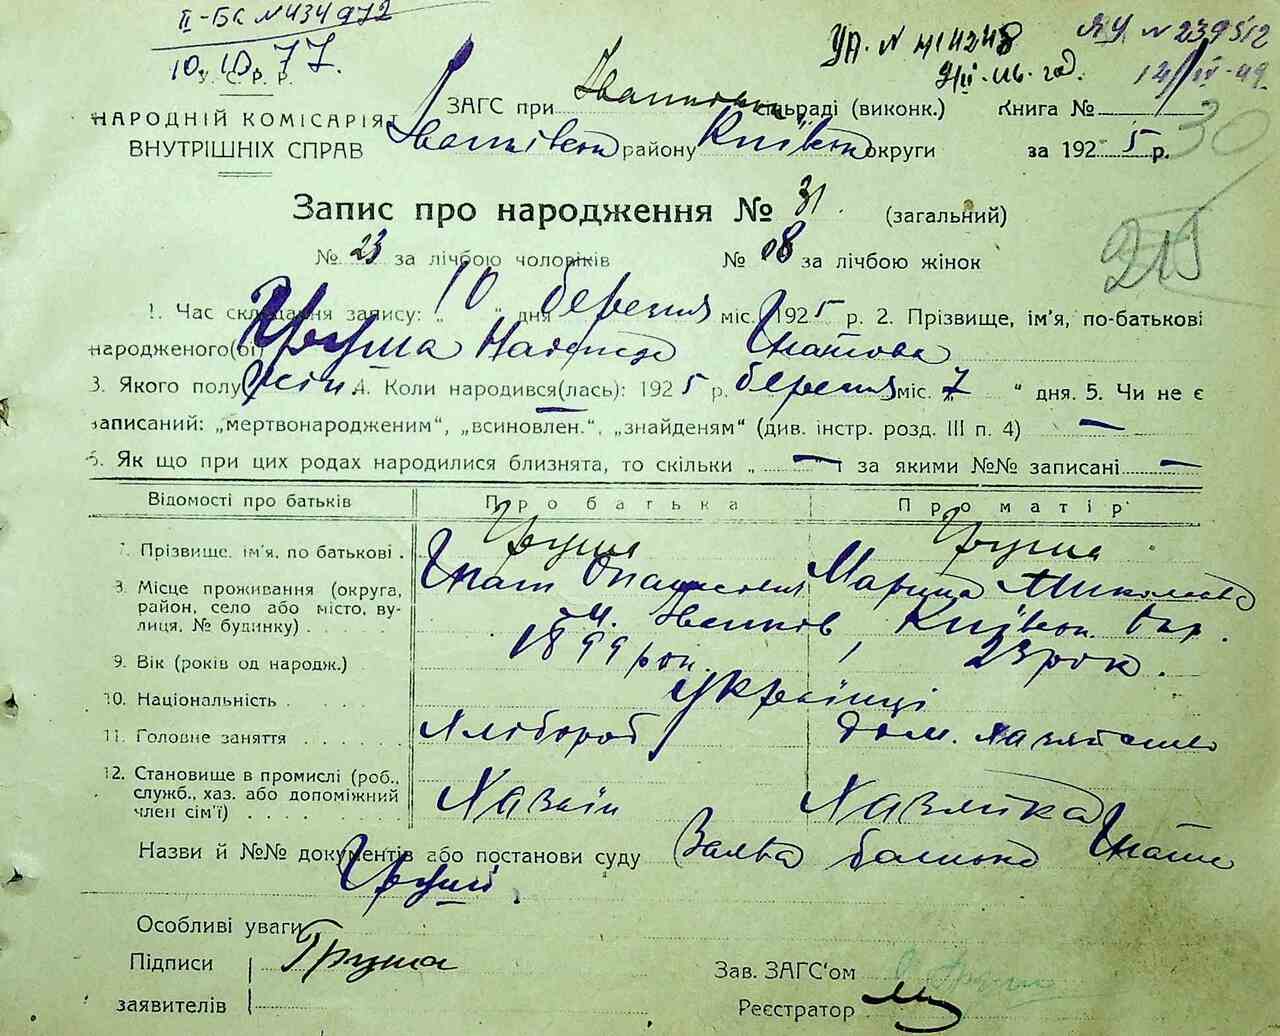 II-БК № 434972
10.10.77.
УА. № 414248
ЯУ № 239512
У. С. Р. Р.
НАРОДНІЙ КОМІСАРІЯТ
ВНУТРІШНІХ СПРАВ
ЗАГС при Іванковск. сільраді (виконк.) Книга №
Іванківськ району Київськ округи за 1925 р.
30
Запис про народження № 31. (загальний)
215
№ 23 за лічбою чоловіків № 08 за лічбою жінок
1. Час складання запису: „10" дня березня міс. 1925 р. 2. Прізвище, ім'я, по-батькові
народженого(ої) Груша Надежда Гнатова
3. Якого полу жін. 4. Коли народився(лась): 1925 р. березня міс. „7" дня. 5. Чи не є
записаний: „мертвонародженим", „всиновлен.", „знайденям" (див. інстр. розд. III п. 4) —
6. Як що при цих родах народилися близнята, то скільки „—" і за якими №№ записані —
Відомості про батьків Про батька Про матір
7. Прізвище, ім'я, по батькові. Груша Груша
Гнат Опанасович Марина Миколаєва
8. Місце проживання (округа, район, село або місто, вулиця, № будинку) м. Іванків Київськ. Окр.
9. Вік (років од народж.) 1899 рок. 23 рок.
10. Національність Українці
11. Головне заняття Хлібороб Дом. хазяйство
12. Становище в промислі (роб., служб., хаз. або допоміжний член сім'ї) Хазяїн Хазяйка
Назви й №№ документів або постанови суду Заява батька Гната
Груши.
Особливі уваги
Підписи Груша
заявителів
Зав. ЗАГС'ом
Реєстратор